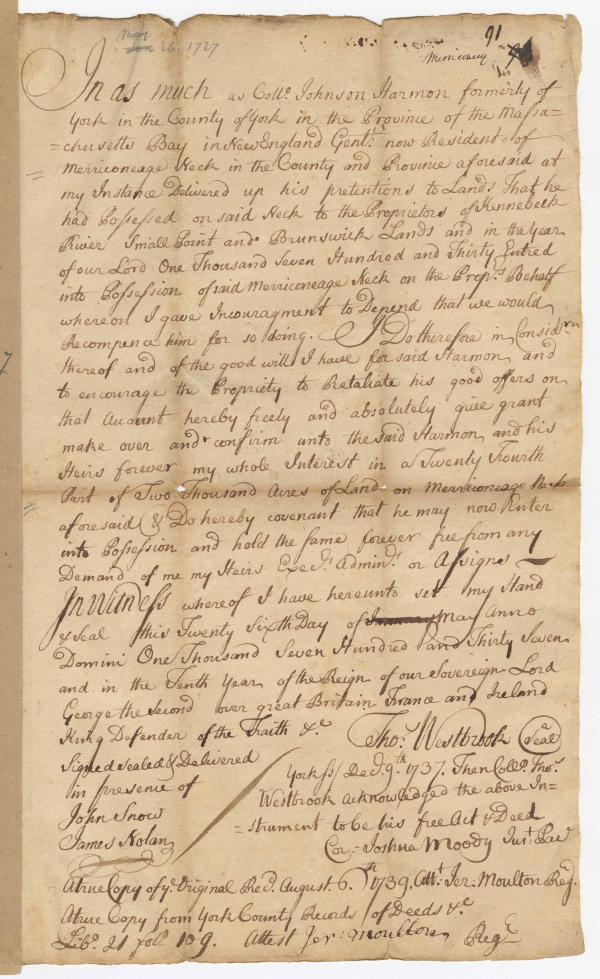 May
Jan 26. 1727
91
Merricon
In as much as Collo. Johnson Harmon formerly of
York in the County of York in the Province of the Massa=
=chusetts Bay in New England Gentl. now Resident of
Merriconeage Neck in the County and Province aforesaid at
my Instance Delivered up his pretentions to Lands That he
had Possessed on said Neck to the Proprietors of Kennebeck
River Small Point and Brunswick Lands and in the Year
of our Lord One Thousand Seven Hundred and Thirty Entred
into Possession of said Merriconeage Neck on the Props. Behalf
whereon I gave Incouragment to Depend that we would
Recompence him for so doing. I Do therefore in Considrn
thereof and of the good will I have for said Harmon and
to encourage the Propriety to Retaliate his good offers on
that Account hereby freely and absolutely give grant
make over and confirm unto the said Harmon and his
Heirs forever my whole Interest in a Twenty Fourth
Part of Two Thousand Acres of Land on Merriconeago Neck
aforesaid & Do hereby covenant that he may now Enter
into Possession and hold the same forever free from any
Demand of me my Heirs Execrs. Adminrs. or Assigns
In Witness whereof I have hereunto set my Hand
& Seal this Twenty Sixth Day of January May Anno
Domini One Thousand Seven Hundred and Thirty Seven
and in the Tenth Year of the Reign of our Sovereign Lord
George the Second over great Britain France and Ireland
King Defender of the Faith &c Thos. Westbrook (Seal)
Signed sealed & Delivered
in presence of
John Snow
James Nolan
York ss/ Decr. 9th. 1737. Then Collo. Thos.
Westbrook Acknowledged the above In=
=strument to be his free Act & Deed
Cor. Joshua Moody Just. Pace
A true Copy of ye. Original Recd. August. 6th. 1739. Attt. Jer: Moulton Regr.
A true Copy from York County Records of Deeds &c
Libo. 21 folo. 109. Attest Jer: Moulton Regr